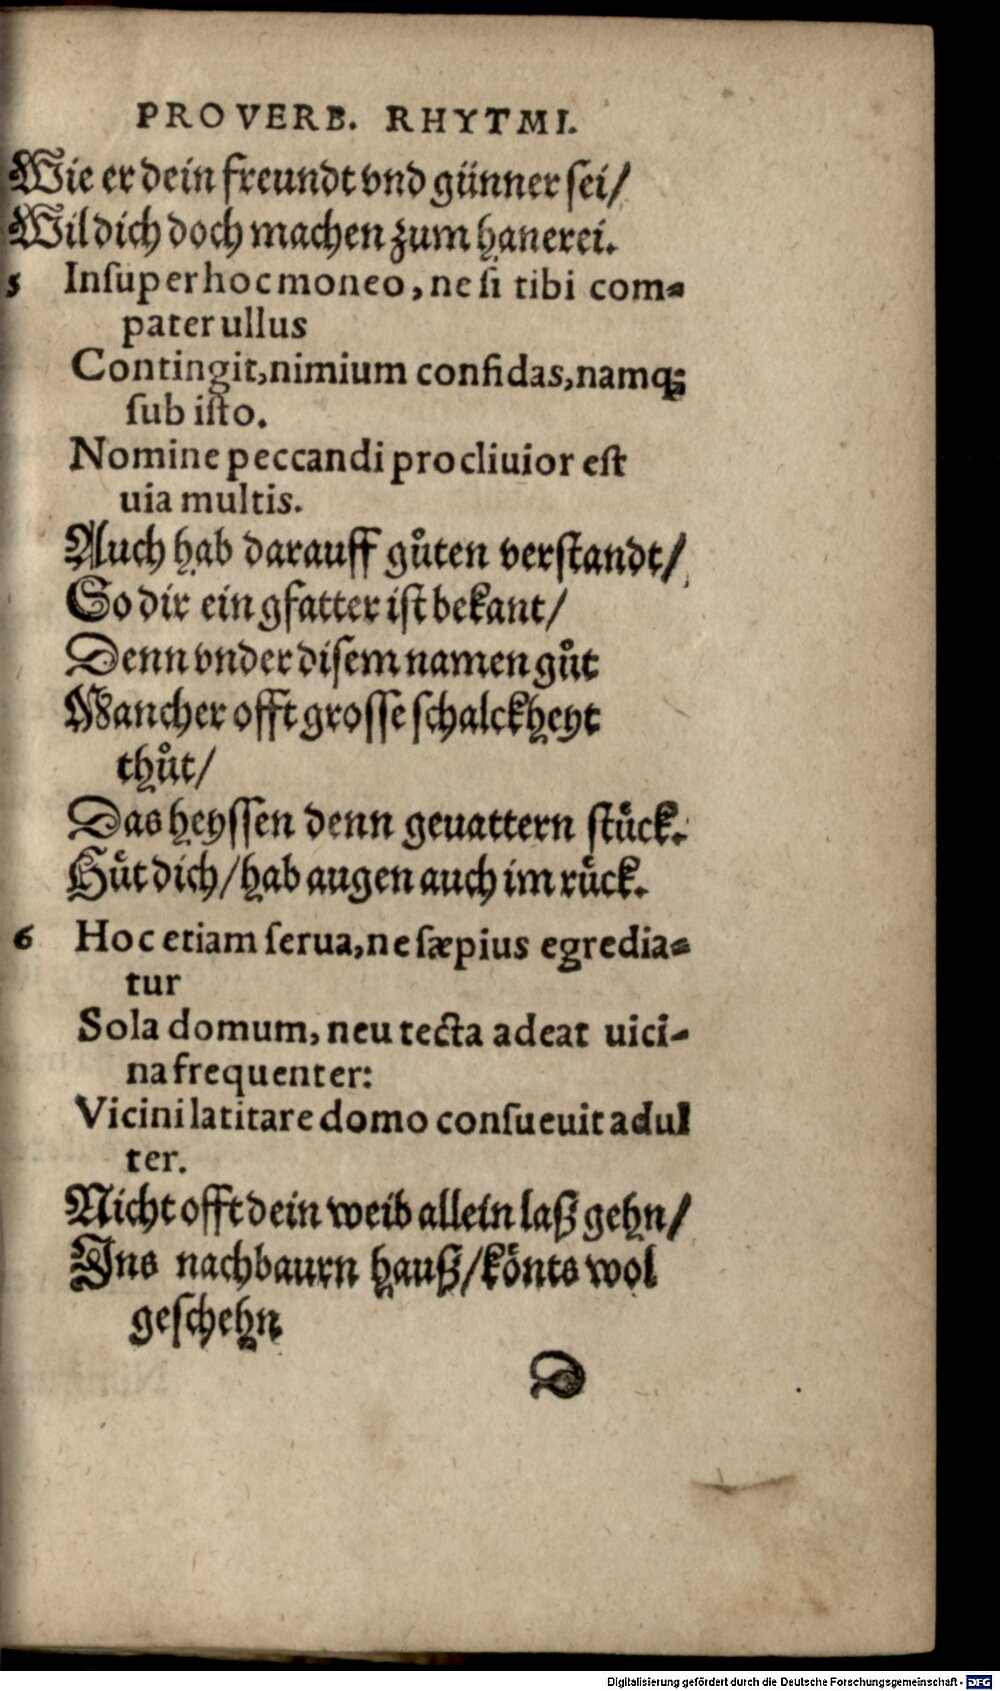 PROVERB. RHYTMI.
Wie er dein freundt vnd günner sei/
Wil dich doch machen zum hanerei.
5 Inſuper hoc moneo, ne ſi tibi com-
pater ullus
Contingit, nimium confidas, namq;
ſub iſto.
Nomine peccandi procliuior eſt
uia multis.
Auch hab darauff gůten verſtandt/
So dir ein gfatter iſt bekant/
Denn vnder diſem namen gůt
Mancher offt groſſe ſchalckheyt
thůt/
Das heyſſen denn geuattern ſtůck.
Hůt dich/ hab augen auch im růck.
6 Hoc etiam ſerua, ne ſæpius egredia-
tur
Sola domum, neu tecta adeat uici-
na frequenter:
Vicini latitare domo conſueuit adul
ter.
Nicht offt dein weib allein laß gehn/
Ins nachbaurn hauß/ kőnts wol
geſchehn
D
Digitalisierung gefördert durch die Deutsche Forschungsgemeinschaft - DFG